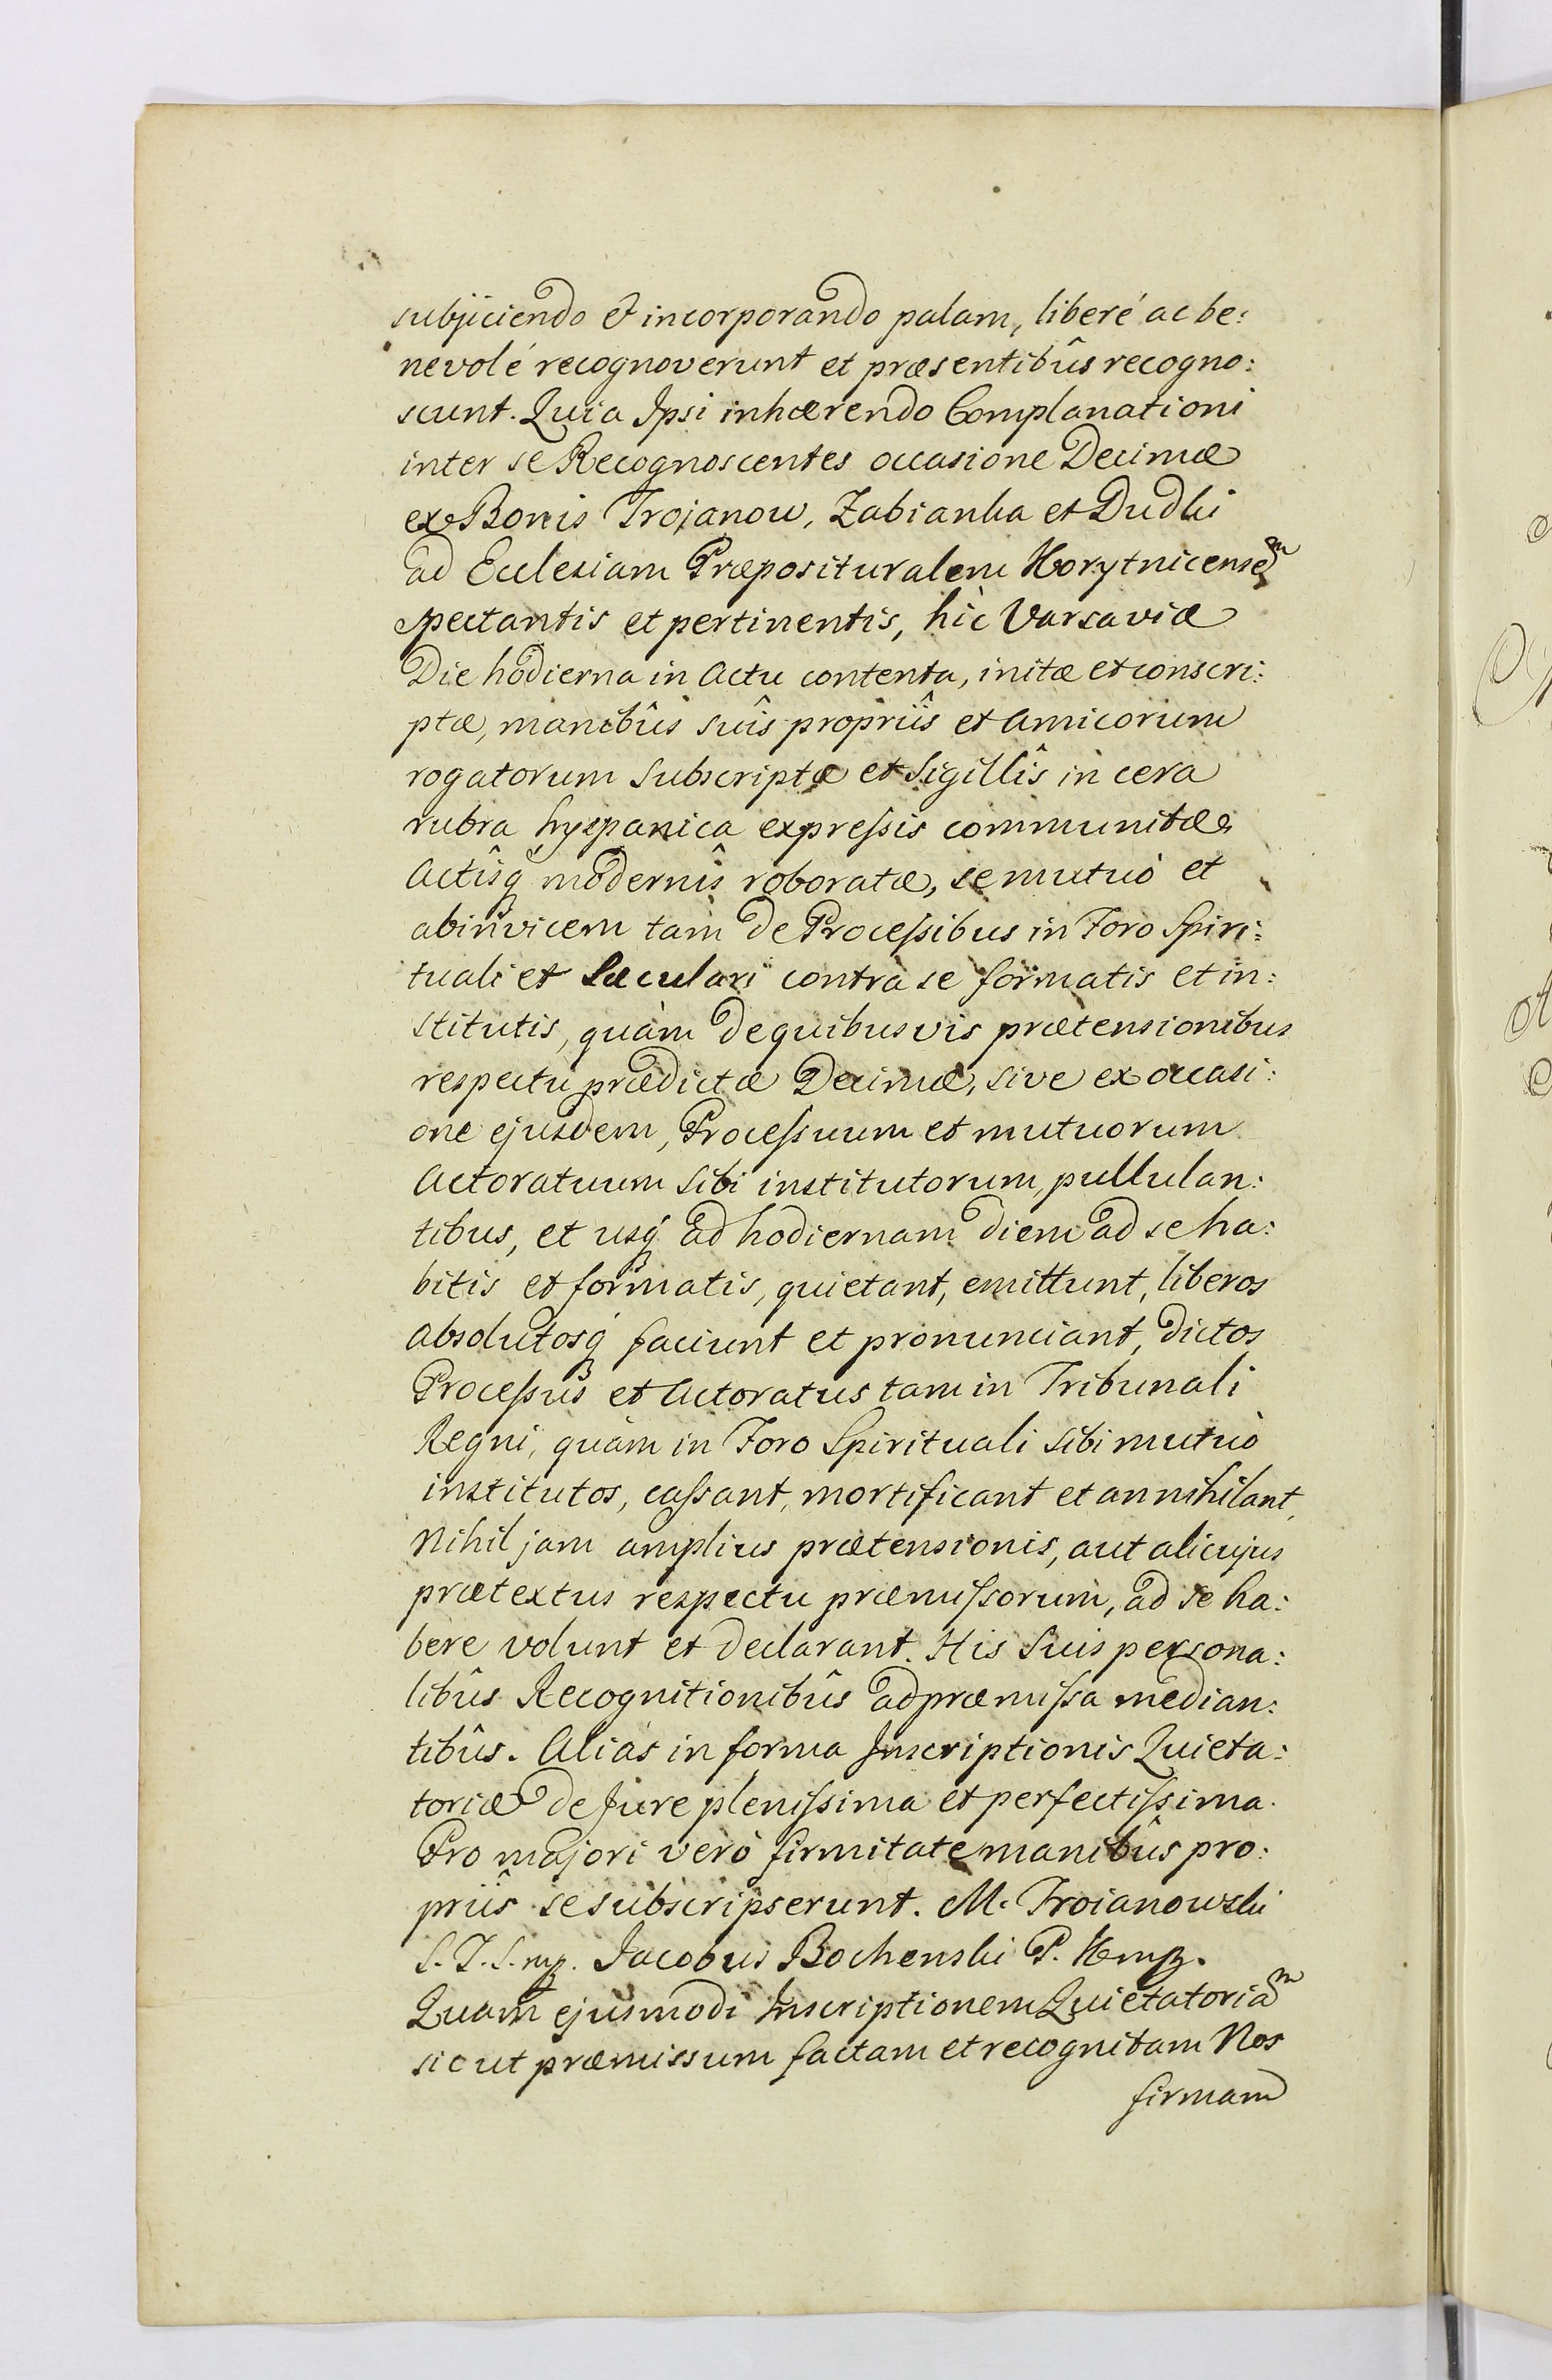 subjiciendo & incorporando palam, liberé ac be:
nevolé recognoverunt et præsentibûs recogno:
scunt. Quia Ipsi inhærendo Complanationi
inter se Recognoscentes occasione Decimæ
ex Bonis Trojanow, Zabianka et Dudki
ad Ecclesiam Præposituralem Korytnicenseᵐ
spectantis et pertinentis, hìc Varsaviæ
Die hodierna in Actu contenta, initæ et conscri:
ptæ, manibûs suîs propriîs et Amicorum
rogatorum Subscriptæ et Sigillîs in cera
rubra hyspanica expressis communitæ
Actîsq́ modernîs roboratæ, se mutuò et
abinvicem tam de Processibus in Foro Spiri:
tuali et Sæculari contra se formatis et in:
stitutis, quàm de quibusvis prætensionibus
respectu prædictæ Decimæ, sive ex occasi:
one ejusdem, Processuum et mutuorum
Actoratuum Sibi institutorum, pullulan:
tibus, et usq́ ad hodiernam diem ad se ha:
bitis et formatis, quietant, emittunt, liberos
absolutosq́ faciunt et pronunciant, dictos
Processus et Actoratus tam in Tribunali
Regni, quàm in Foro Spirituali sibi mutuò
institutos, cassant, mortificant et annihilant,
Nihil jam amplius prætensionis, aut alicujus
prætextus respectu præmissorum, ad se ha:
bere volunt et declarant. His Suis persona:
libûs Recognitionibûs ad præmissa median:
tibûs. Aliàs in forma Inscriptionis Quieta:
toriæ de Jure plenissima et perfectissima.
Pro majori verò firmitate manibûs pro:
priîs se subscripserunt. M. Troianowski
S. J. S. mp. Jacobus Bochenski P. K mp.
Quam ejusmodi Inscriptionem Quietatoriaᵐ
sicut præmissum factam et recognitam Nos
firmam